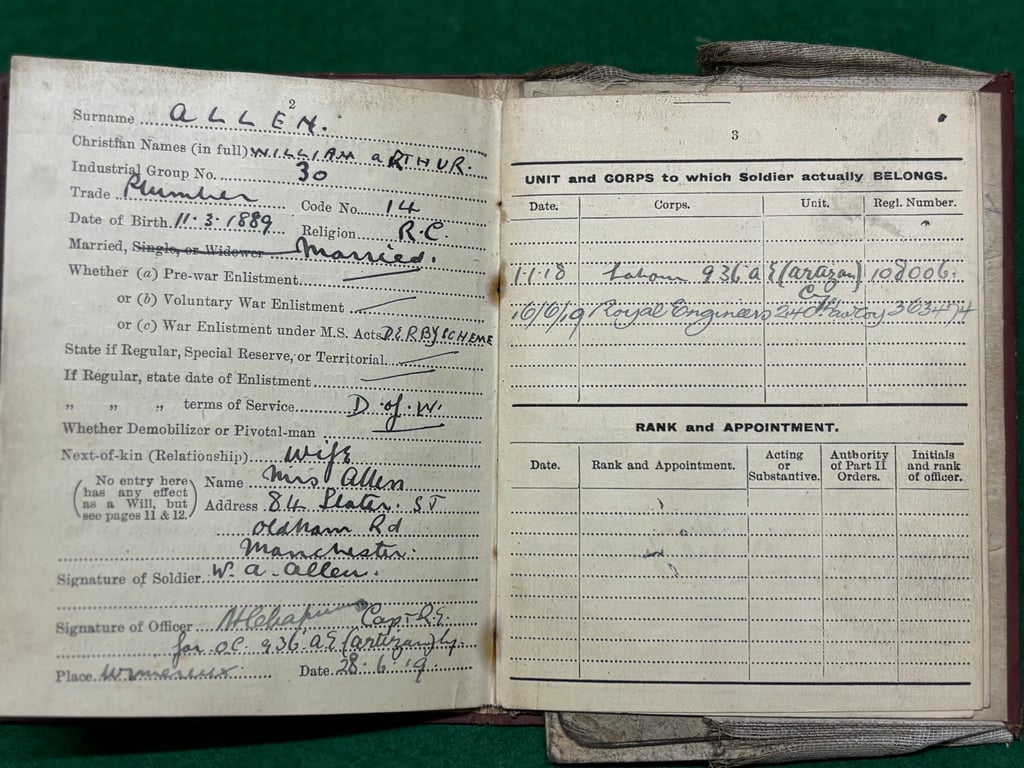 2
Surname ALLEN.
Christian Names (in full) WILLIAM ARTHUR.
Industrial Group No. 30
Trade Plumber Code No. 14
Date of Birth 11.3.1889 Religion R.C.
Married, Single, or Widower Married.
Whether (a) Pre-war Enlistment
or (b) Voluntary War Enlistment
or (c) War Enlistment under M.S. Acts DERBY SCHEME
State if Regular, Special Reserve, or Territorial
If Regular, state date of Enlistment
„ „ „ terms of Service D of W.
Whether Demobilizer or Pivotal-man
Next-of-kin (Relationship) Wife
(No entry here has any effect as a Will, but see pages 11 & 12.)
Name Mrs Allen
Address 84 Slater. ST
Oldham Rd
Manchester.
Signature of Soldier W. A. Allen.
Signature of Officer Capt R.E.
for O.C. 936 A.E (artizan) Cy.
Place Wimereux Date 28.6.19
3
UNIT and CORPS to which Soldier actually BELONGS.
Date. Corps. Unit. Regl. Number.
1.1.18 Labour 936 A E (artizan) Cy
16/6/19 Royal Engineers 363474
RANK and APPOINTMENT.
Date. Rank and Appointment. Acting or Substantive. Authority of Part II Orders. Initials and rank of officer.